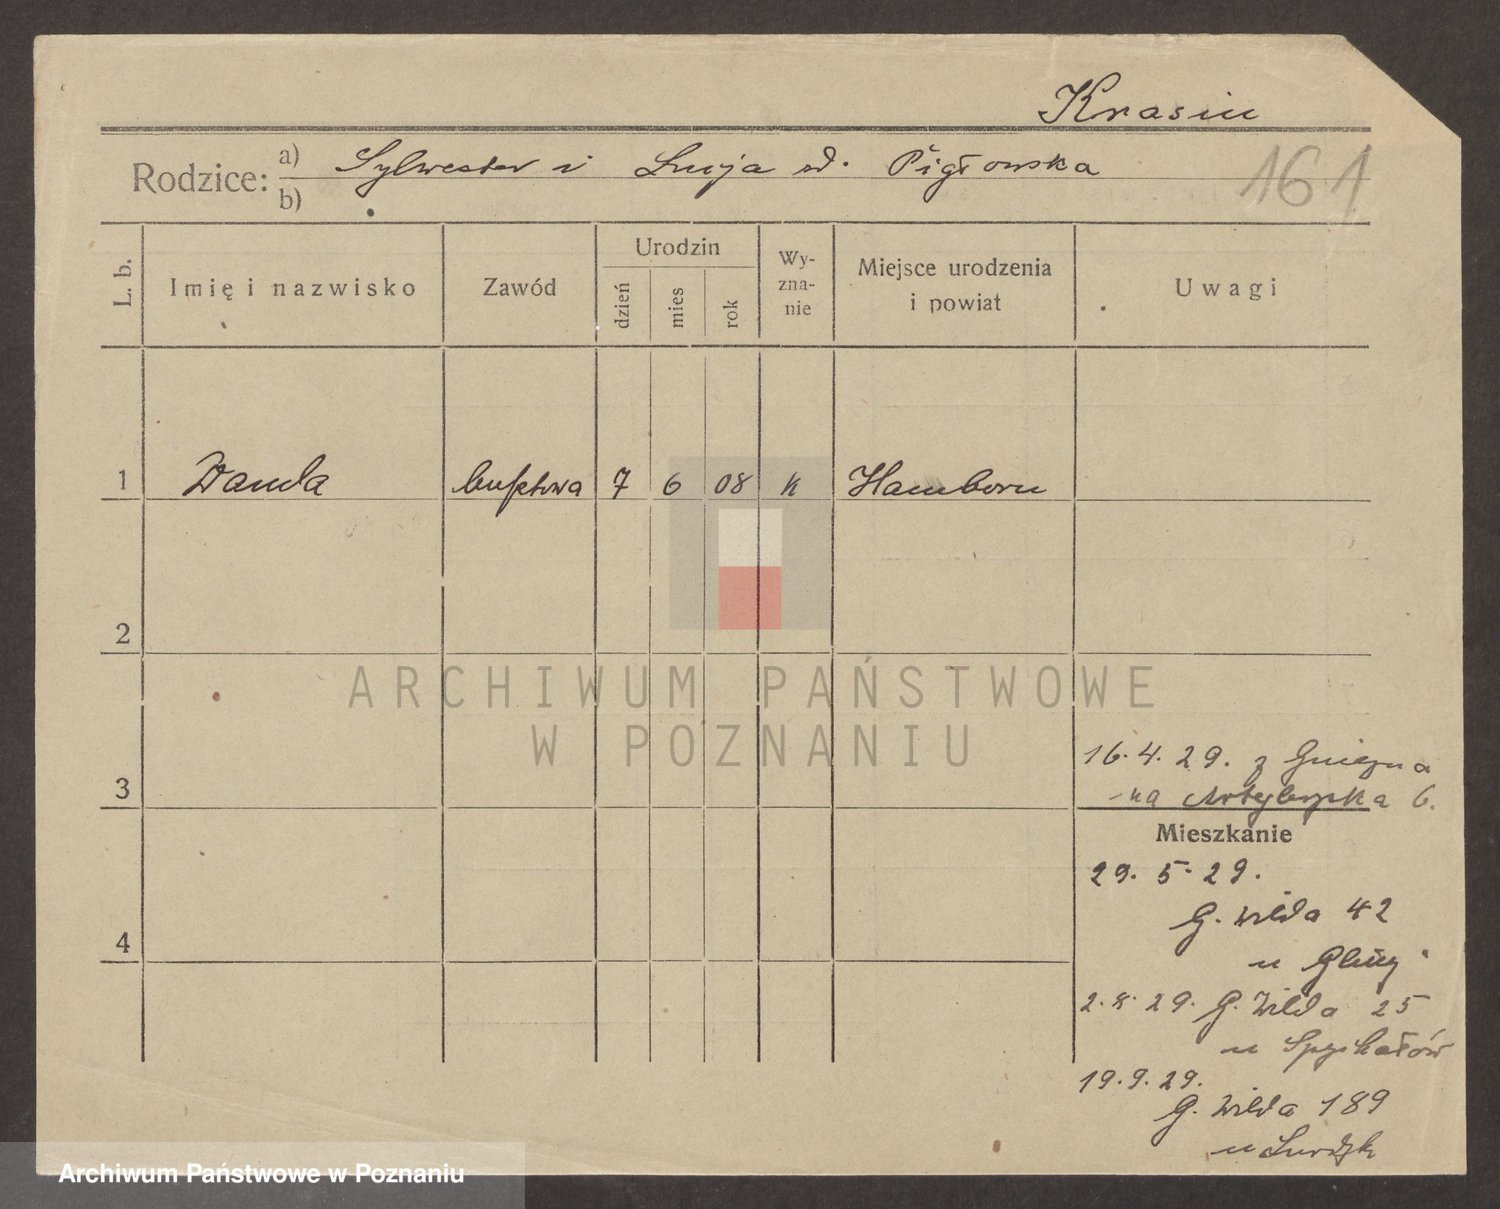 Krasin
161
Rodzice: a) Sylwester i Lucja zd. Pigłowska
b)
L. b.
Imię i nazwisko
Zawód
Urodzin
dzień
mies
rok
Wy-
zna-
nie
Miejsce urodzenia
i powiat
Uwagi
1 Wanda bufetowa 7 6 08 k Hamborn
2
3
4
16.4.29. z Gniezna
na 6.
Mieszkanie
29. 5. 29.
G. Wilda 42
u
2.8.29. G. Wilda 25
u Spychałów
19.9.29.
G. Wilda 189
u
ARCHIWUM PAŃSTWOWE
W POZNANIU
Archiwum Państwowe w Poznaniu